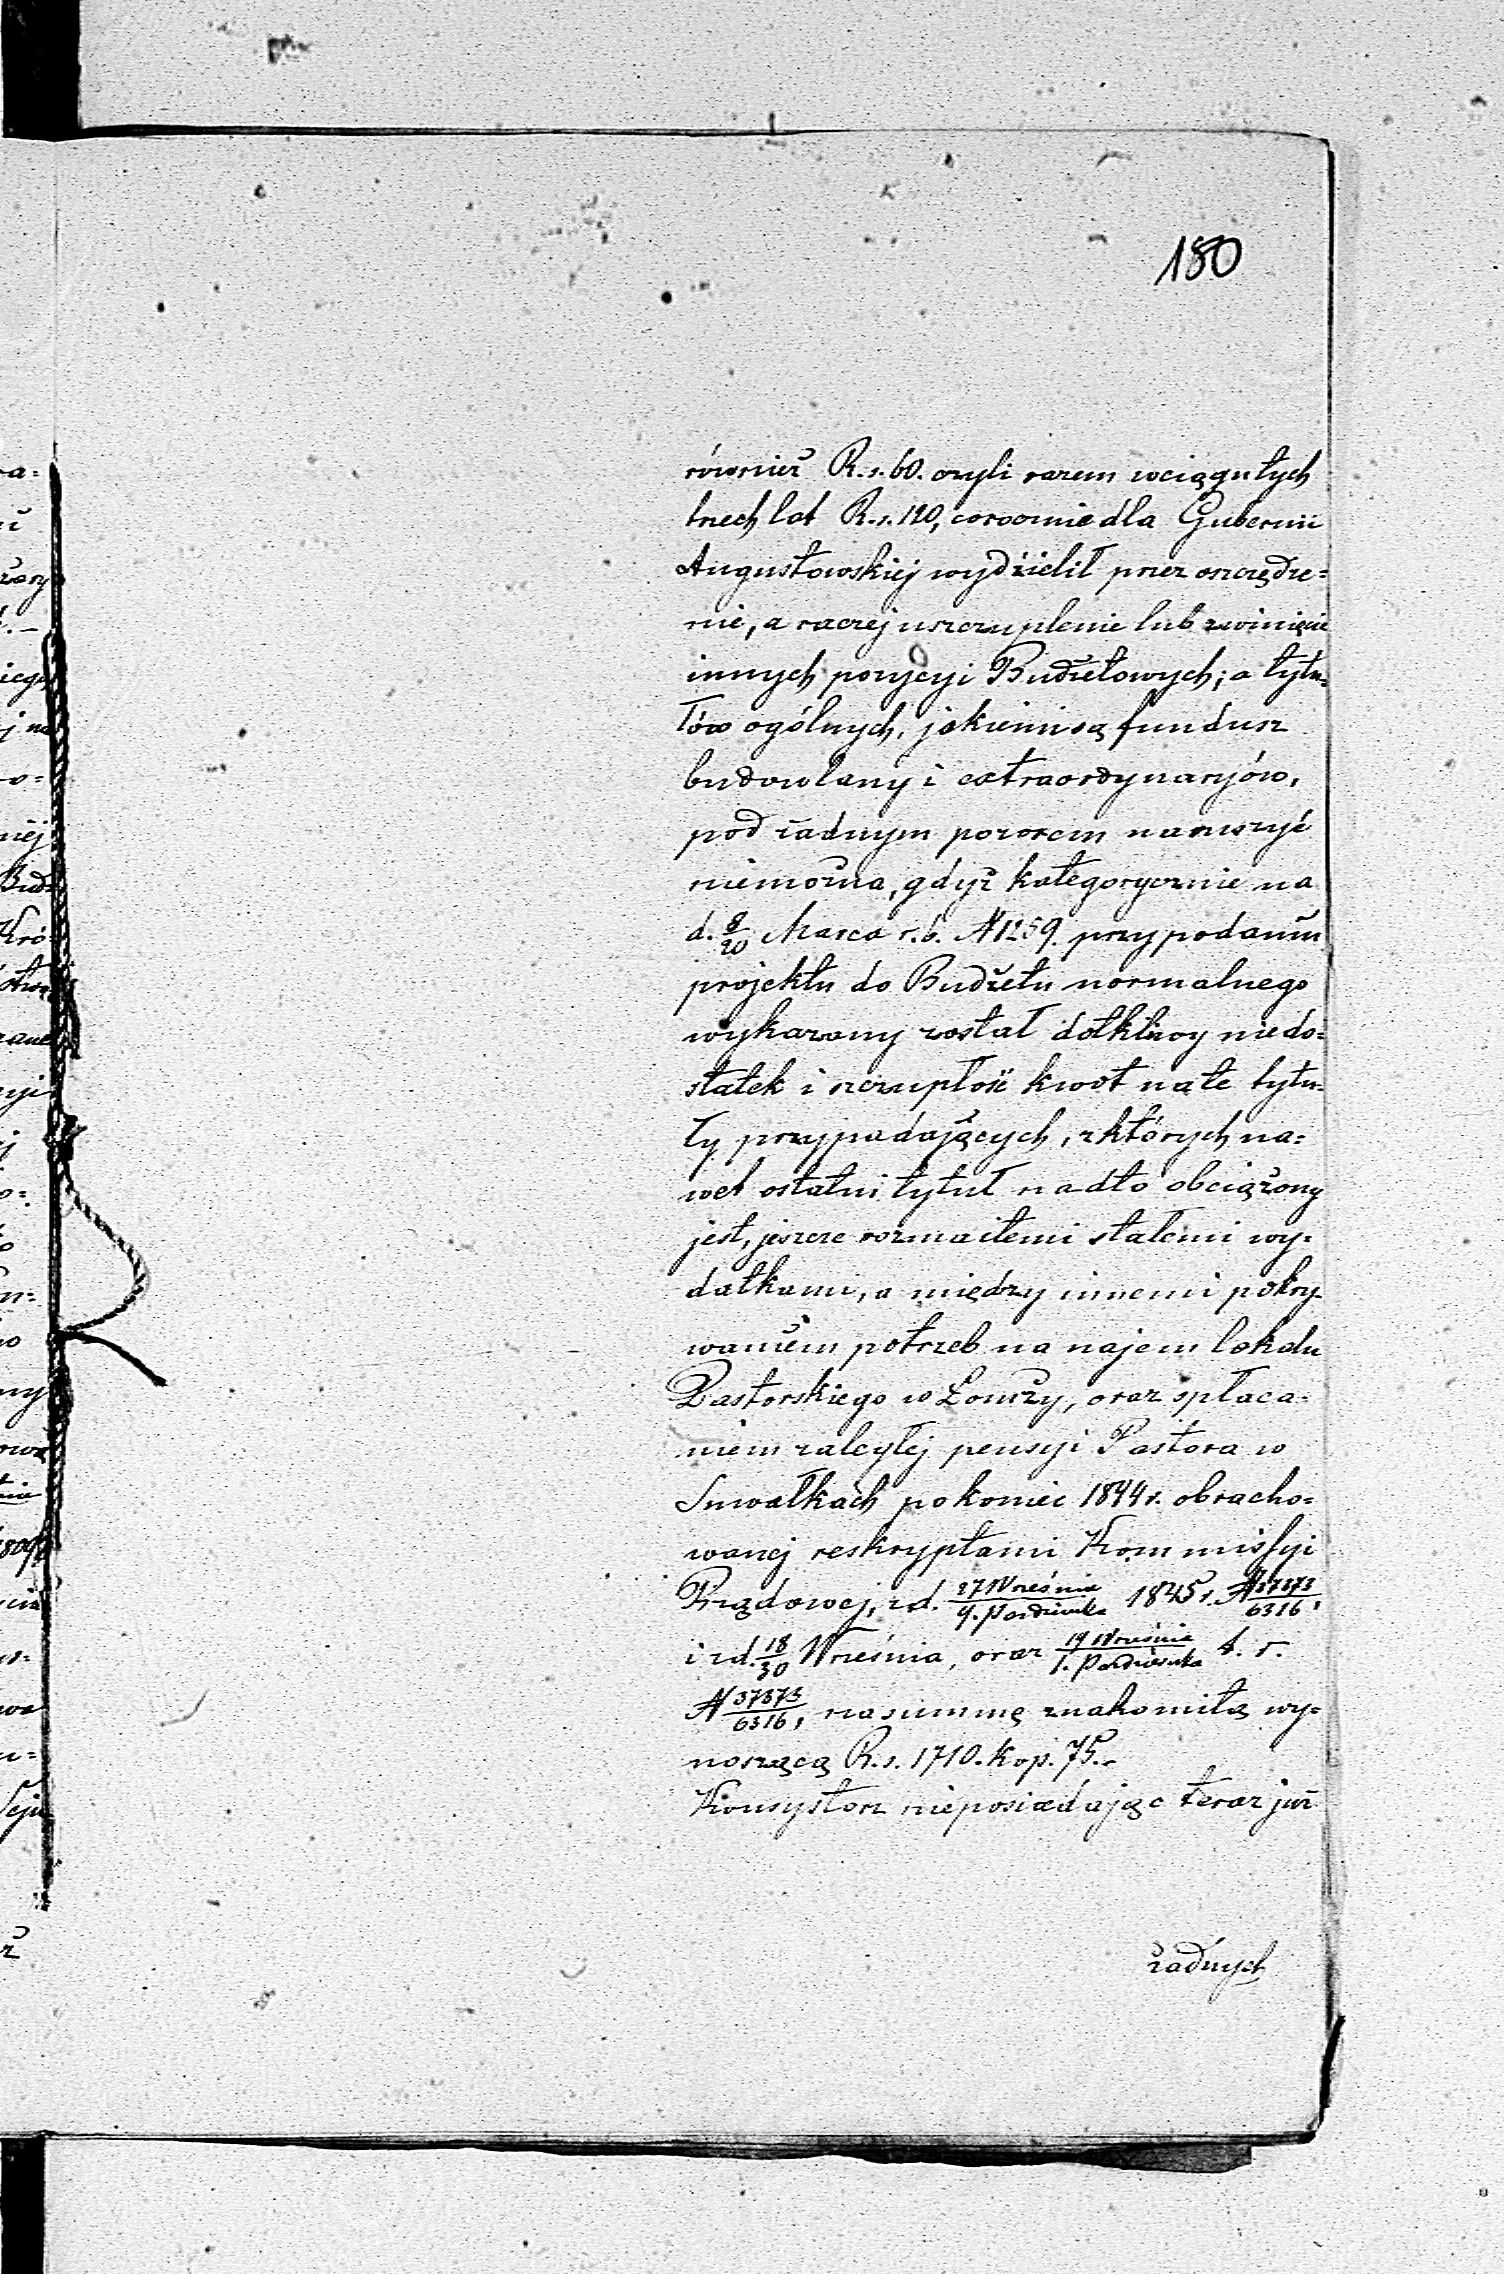 180
również R.s. 60. czyli razem wciągu tych
trzech lat R.s. 120, corocznie dla Gubernii
Augustowskiej wydzielił przez oszczędze=
nie, a raczej uszczuplenie lub zwinięcie
innych pozycyi Budżetowych; a tytu=
łów ogólnych, jakiemi są fundusz
budowlany i extraordynaryjów,
pod żadnym pozorem naruszyć
niemożna, gdyż kategorycznie na
d. 8/20 Marca r.b. N 1259. przy podaniu
projektu do Budżetu normalnego
wykazany został dotkliwy niedo=
statek i szczupłość kwot na te tytu=
ły przypadających, z których na=
wet ostatni tytuł nadto obciążony
jest, jeszcze rozmaitemi stałemi wy=
datkami, a między innemi pokry=
waniem potrzeb na najem lokalu
Pastorskiego w Łomży, oraz spłaca=
niem zaległej pensyi Pastora w
Suwałkach po koniec 1844 r. obracho=
wanej reskryptami Kommissyi
Rządowej, z d. 27 Września/9. Października 1845 r. N 37373/6316,
i z d. 18/30 Września, oraz 19 Września/1. Października t. r.
N 37373/6316, na summę znakomitą wy=
noszącą R.s. 1710. kop. 75.-
Konsystorz nieposiadając teraz już
żadnych